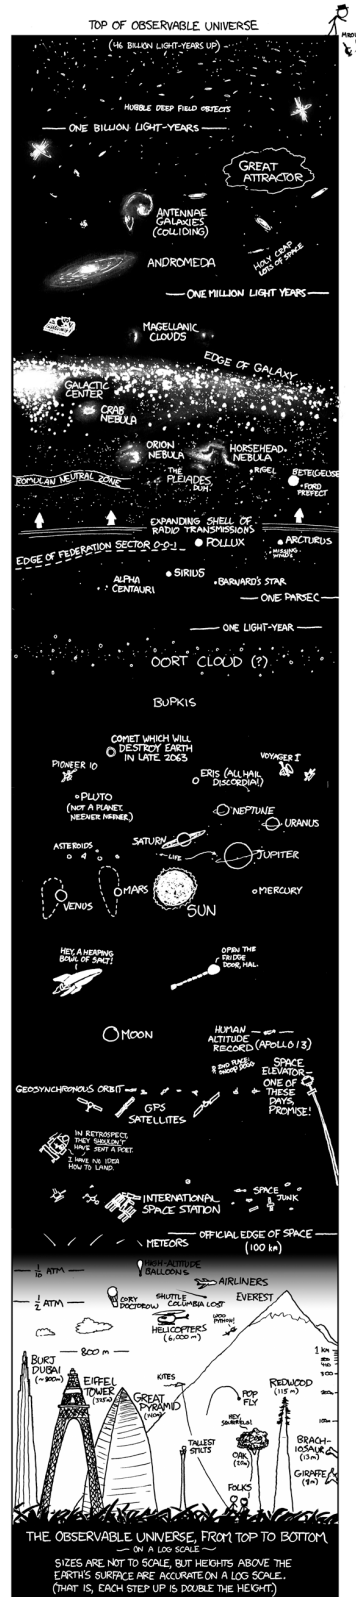 TOP OF OBSERVABLE UNIVERSE
(46 BILLION LIGHT-YEARS UP)
HUBBLE DEEP FIELD OBJECTS
ONE BILLION LIGHT-YEARS
GREAT
ATTRACTOR
ANTENNAE
GALAXIES
(COLLIDING)
HOLY CRAP
LOTS OF SPACE
ANDROMEDA
ONE MILLION LIGHT YEARS
MAGELLANIC
CLOUDS
EDGE OF GALAXY
GALACTIC
CENTER
CRAB
NEBULA
ORION
NEBULA
HORSEHEAD
NEBULA
THE
PLEIADES,
DUH.
RIGEL
BETELGEUSE
FORD
PREFECT
ROMULAN NEUTRAL ZONE
EXPANDING SHELL OF
RADIO TRANSMISSIONS
EDGE OF FEDERATION SECTOR 0-0-1
POLLUX
ARCTURUS
MISSING
WMDS
SIRIUS
ALPHA
CENTAURI
BARNARD'S STAR
ONE PARSEC
ONE LIGHT-YEAR
OORT CLOUD (?)
BUPKIS
COMET WHICH WILL
DESTROY EARTH
IN LATE 2063
PIONEER 10
VOYAGER I
ERIS (ALL HAIL
DISCORDIA!)
PLUTO
(NOT A PLANET,
NEENER NEENER)
NEPTUNE
URANUS
SATURN
ASTEROIDS
LIFE
JUPITER
MARS
VENUS
SUN
MERCURY
HEY, A HEAPING
BOWL OF SALT!
OPEN THE
FRIDGE
DOOR, HAL.
MOON
HUMAN
ALTITUDE
RECORD (APOLLO 13)
2ND PLACE:
SNOOP DOGG
SPACE
ELEVATOR—
ONE OF
THESE
DAYS,
PROMISE!
GEOSYNCHRONOUS ORBIT
GPS
SATELLITES
IN RETROSPECT,
THEY SHOULDN'T
HAVE SENT A POET.
I HAVE NO IDEA
HOW TO LAND.
INTERNATIONAL
SPACE STATION
SPACE
JUNK
METEORS
OFFICIAL EDGE OF SPACE
(100 km)
HIGH-ALTITUDE
BALLOONS
1/10 ATM
AIRLINERS
1/2 ATM
CORY
DOCTOROW
SHUTTLE
COLUMBIA LOST
EVEREST
HELICOPTERS
(6,000 m)
WOO
PYTHON!
800 m
1 km
BURJ
DUBAI
(~800m)
EIFFEL
TOWER
(325m)
GREAT
PYRAMID
KITES
POP
FLY
REDWOOD
(115 m)
HEY,
SQUIRRELS!
OAK
(20m)
TALLEST
STILTS
FOLKS
BRACH-
IOSAUR
(13m)
GIRAFFE
(8m)
THE OBSERVABLE UNIVERSE, FROM TOP TO BOTTOM
— ON A LOG SCALE —
SIZES ARE NOT TO SCALE, BUT HEIGHTS ABOVE THE
EARTH'S SURFACE ARE ACCURATE ON A LOG SCALE.
(THAT IS, EACH STEP UP IS DOUBLE THE HEIGHT.)